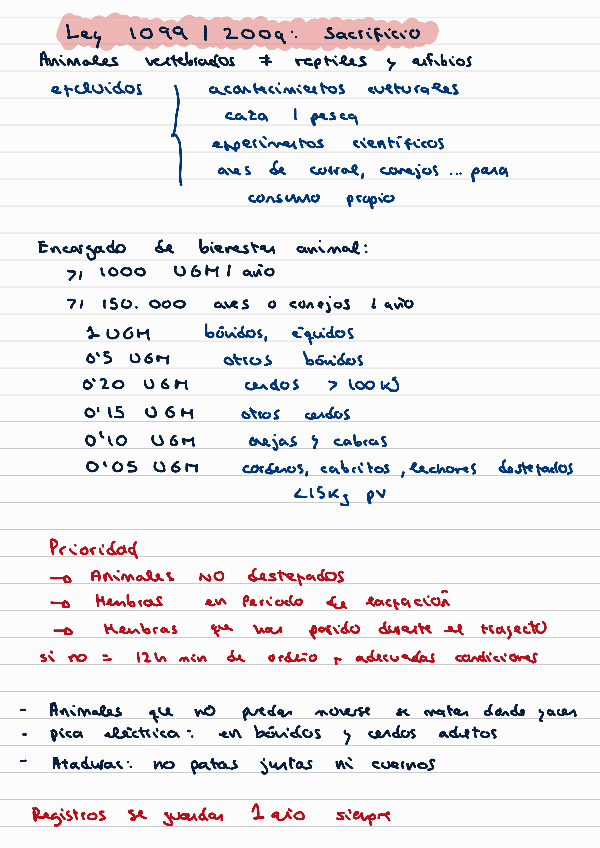 Ley 1099 / 2009: Sacrificio
Animales vertebrados ≠ reptiles y anfibios
excluidos
acontecimientos culturales
caza / pesca
experimentos científicos
aves de corral, conejos ... para
consumo propio
Encargado de bienestar animal:
>/ 1000 UGM / año
>/ 150.000 aves o conejos / año
1 UGM bóvidos, équidos
0'5 UGM otros bóvidos
0'20 UGM cerdos > 100 Kg
0'15 UGM otros cerdos
0'10 UGM ovejas y cabras
0'05 UGM corderos, cabritos, lechones destetados
<15Kg pv
Prioridad
→ Animales NO destetados
→ Hembras en Periodo de lactación
→ Hembras que han parido durante el trayecto
si no = 12h min de ordeño + adecuadas condiciones
- Animales que no puedan moverse se matan donde yacen
- pica eléctrica: en bóvidos y cerdos adultos
- Ataduras: no patas juntas ni cuernos
Registros se guardan 1 año siempre